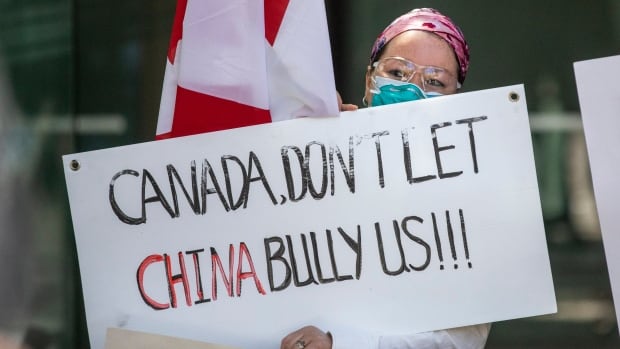 CANADA, DON'T LET
CHINA BULLY US!!!